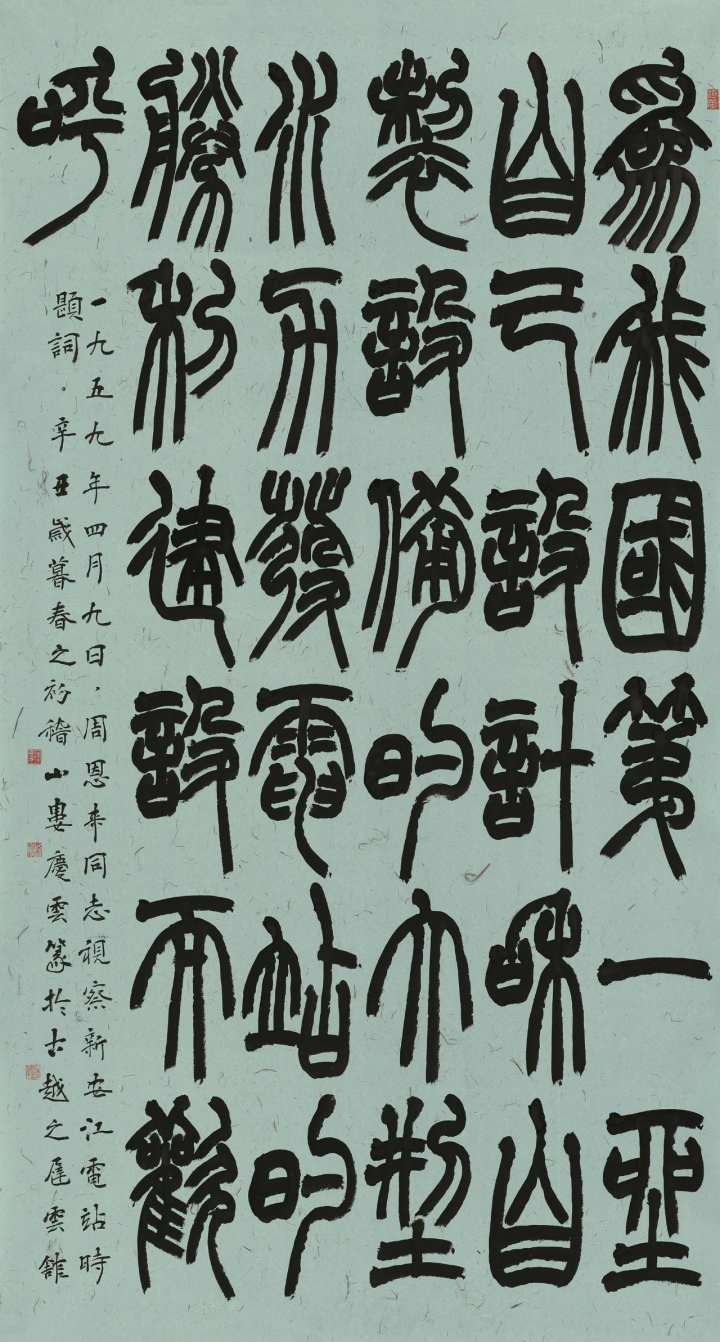 爲我國第一坐
自己設計和自
製設備的大型
水力發電站的
勝利建設而歡
呼
一九五九年四月九日，周恩来同志視察新安江電站時
題詞。辛丑歲暮春之初稽山婁慶雲篆於古越之雲舘